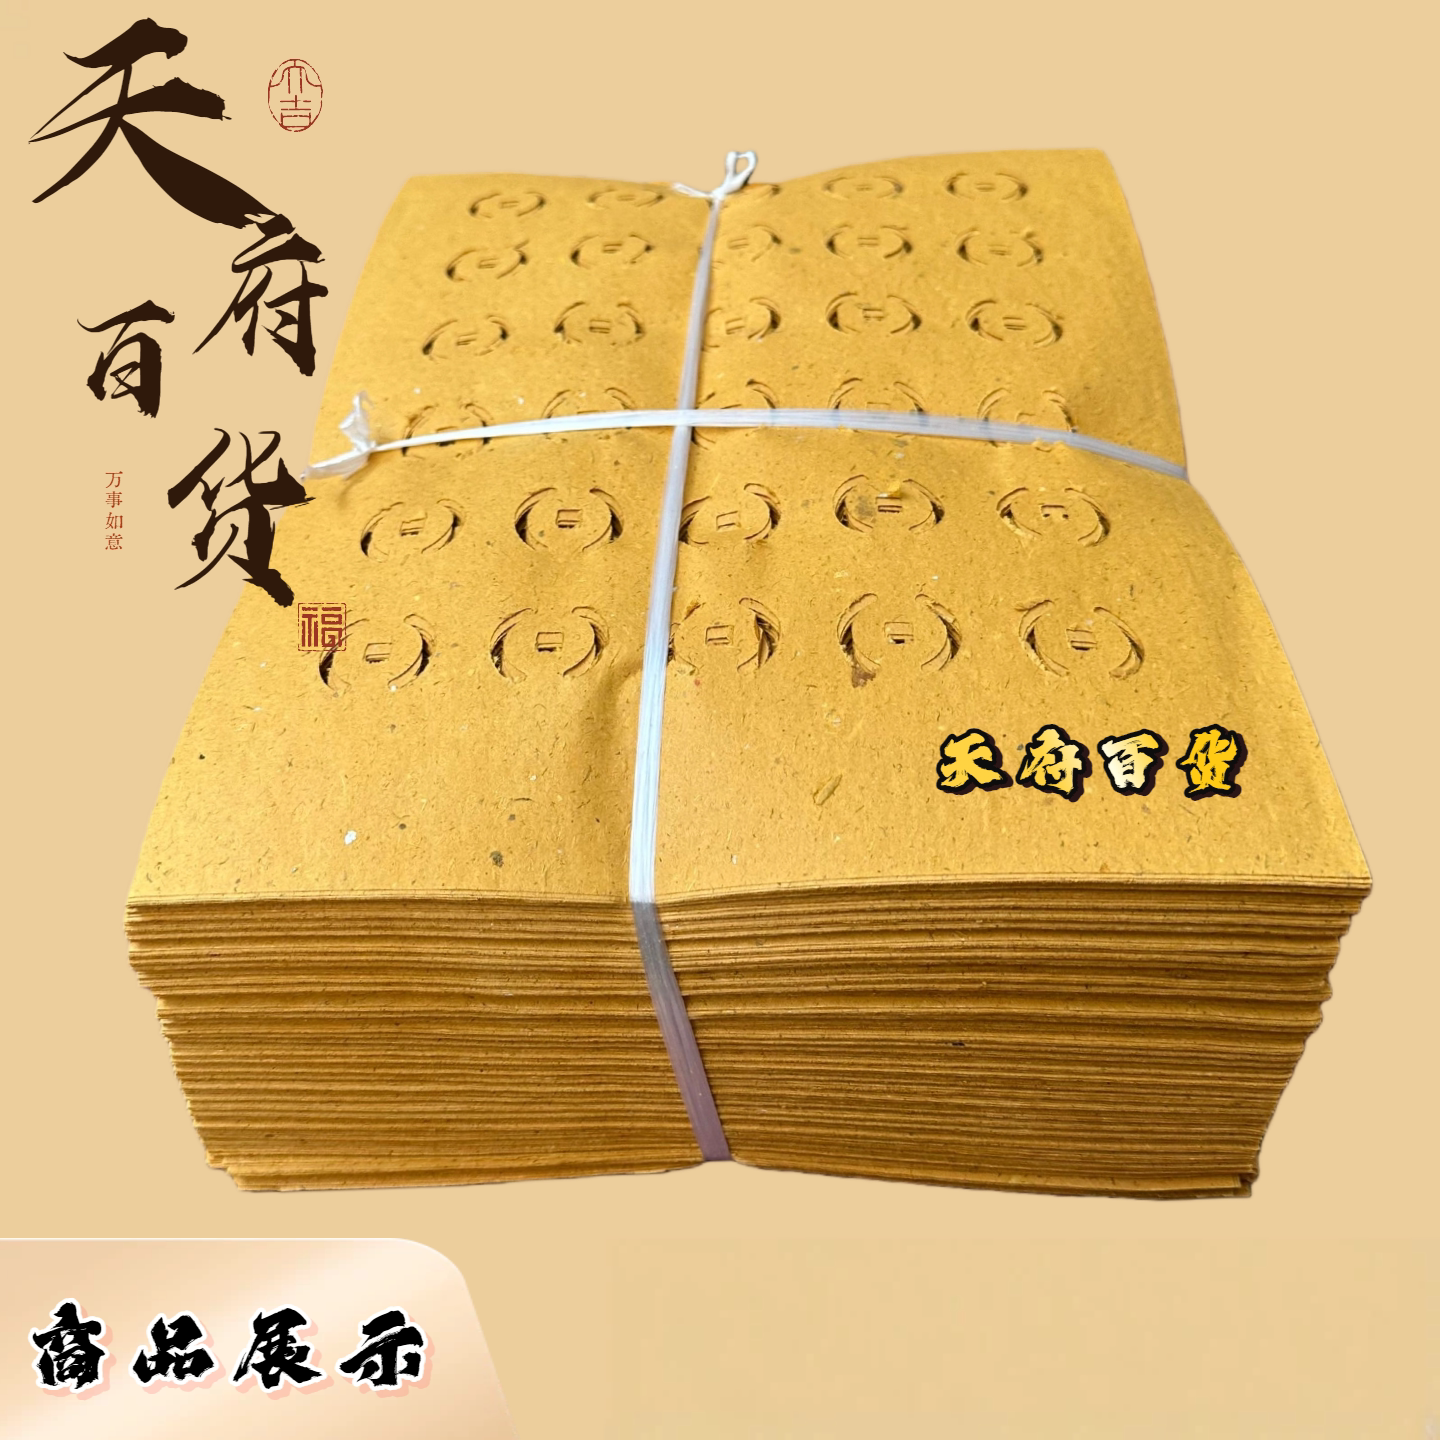 天府百货
大吉
万事如意
福
天府百货
商品展示